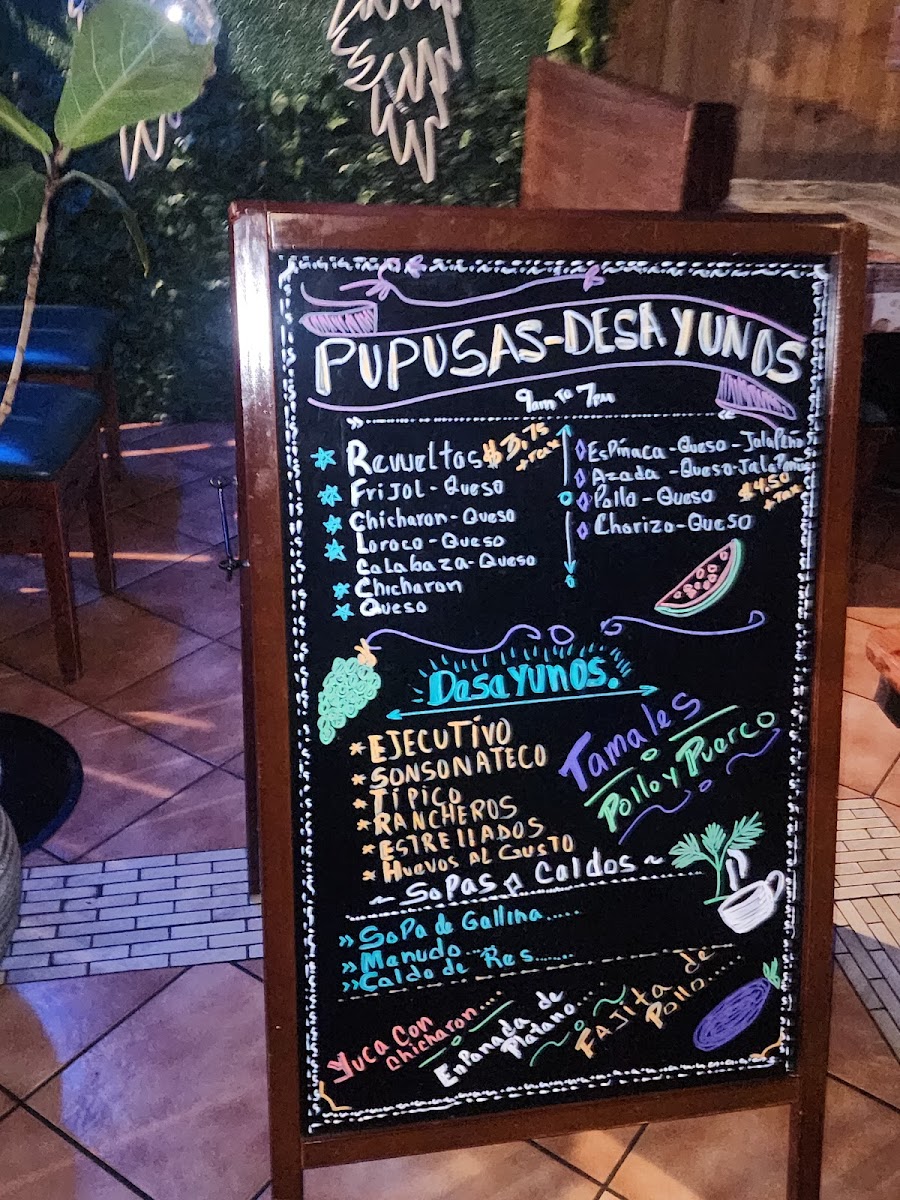 PUPUSAS-DESAYUNOS
9am To 7pm
Revueltos $3.75
+Tax
Frijol-Queso
Chicharon-Queso
Loroco-Queso
Calabaza-Queso
Chicharon
Queso
Espinaca-Queso-Jalapeño
Azada-Queso-Jalapeño
Pollo-Queso $4.50
+Tax
Chorizo-Queso
Desayunos.
*EJECUTIVO
*SONSONATECO
*TíPICO
*RANCHEROS
*ESTRELLADOS
*HUEVOS AL GUSTO
Tamales
Pollo y Puerco
~Sopas Caldos~
»Sopa de Gallina.....
»Menudo.....
»Caldo de Res.......
Yuca Con
chicharon....
Enpanada de
Platano....
FAJita de
Pollo......